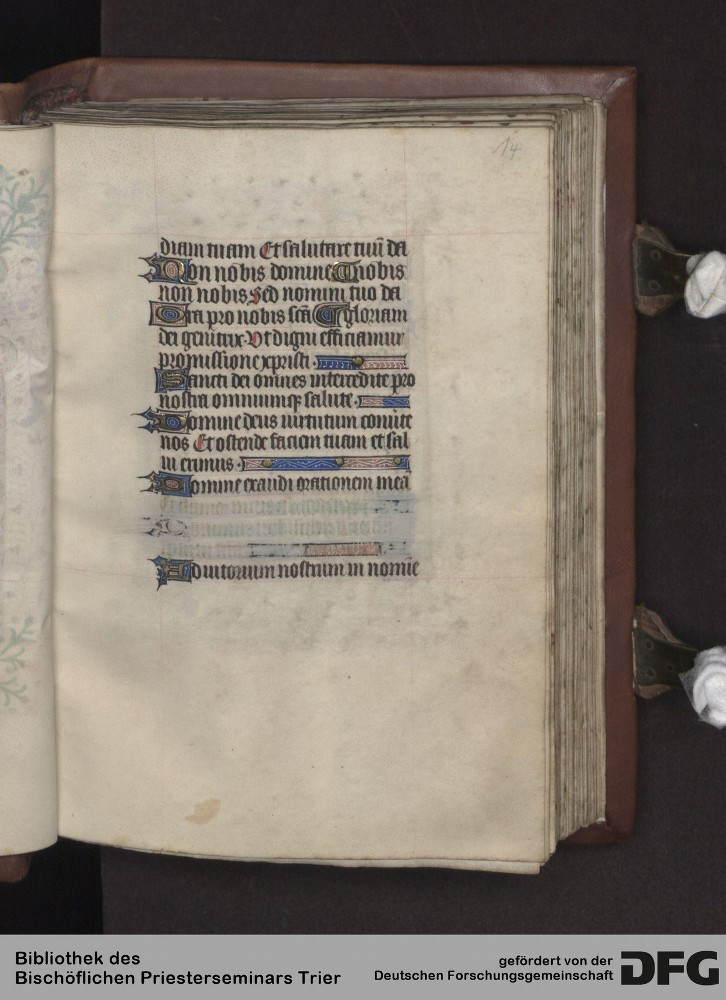 14
diam tuam Et salutare tuū da
Non nobis domine nobis
non nobis Sed nomini tuo da
Ora pro nobis scā gloriam
dei genitrix Vt digni efficiamur
promissione xpristi
Sancti dei omnes intercedite pro
nostra omniumqꝫ salute
Domine deus uirtutum conuite
nos Et ostende faciem tuam et sal
ui erimus
Domine exaudi orationem meā
Adiutorium nostrum in nomīe
Bibliothek des
Bischöflichen Priesterseminars Trier
gefördert von der
Deutschen Forschungsgemeinschaft
DFG